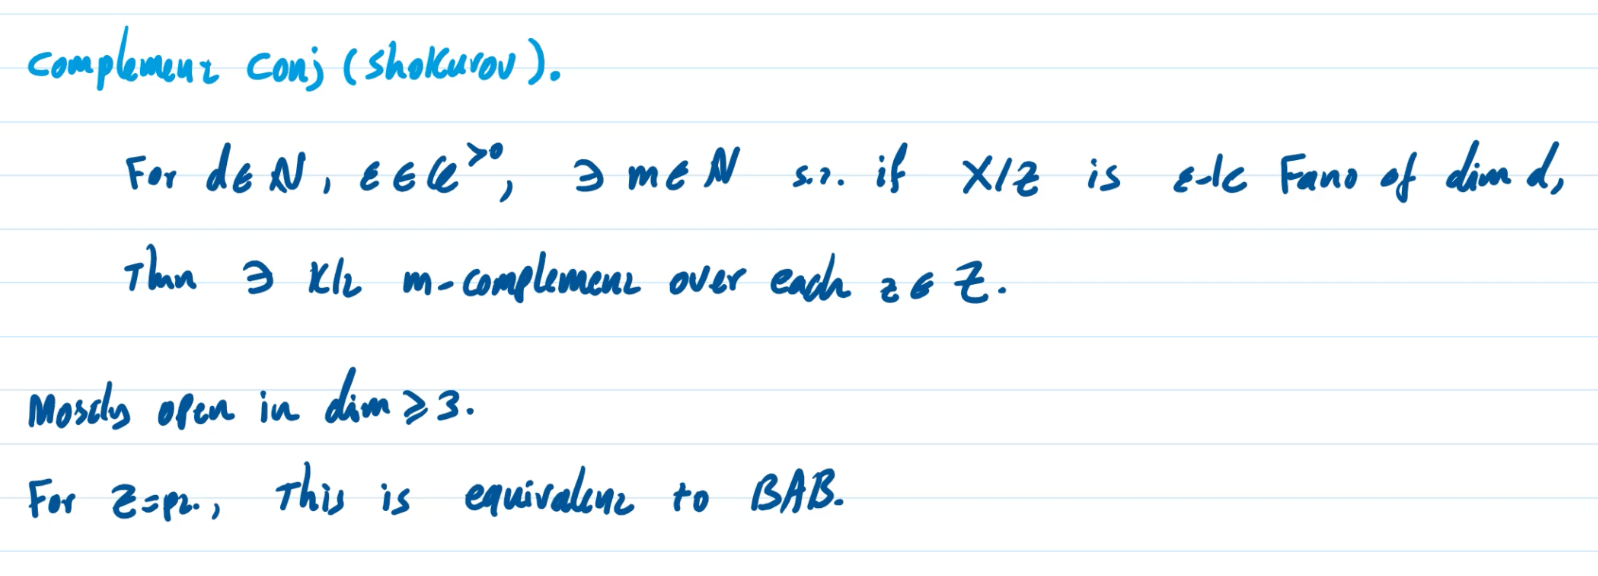 Complement Conj (Shokurov).
For d ∈ ℕ, ε ∈ ℚ^{>0}, ∃ m ∈ ℕ s.t. if X/Z is ε-lc Fano of dim d,
Then ∃ klt m-complement over each z ∈ Z.
Mostly open in dim ≥ 3.
For Z = pt., This is equivalent to BAB.